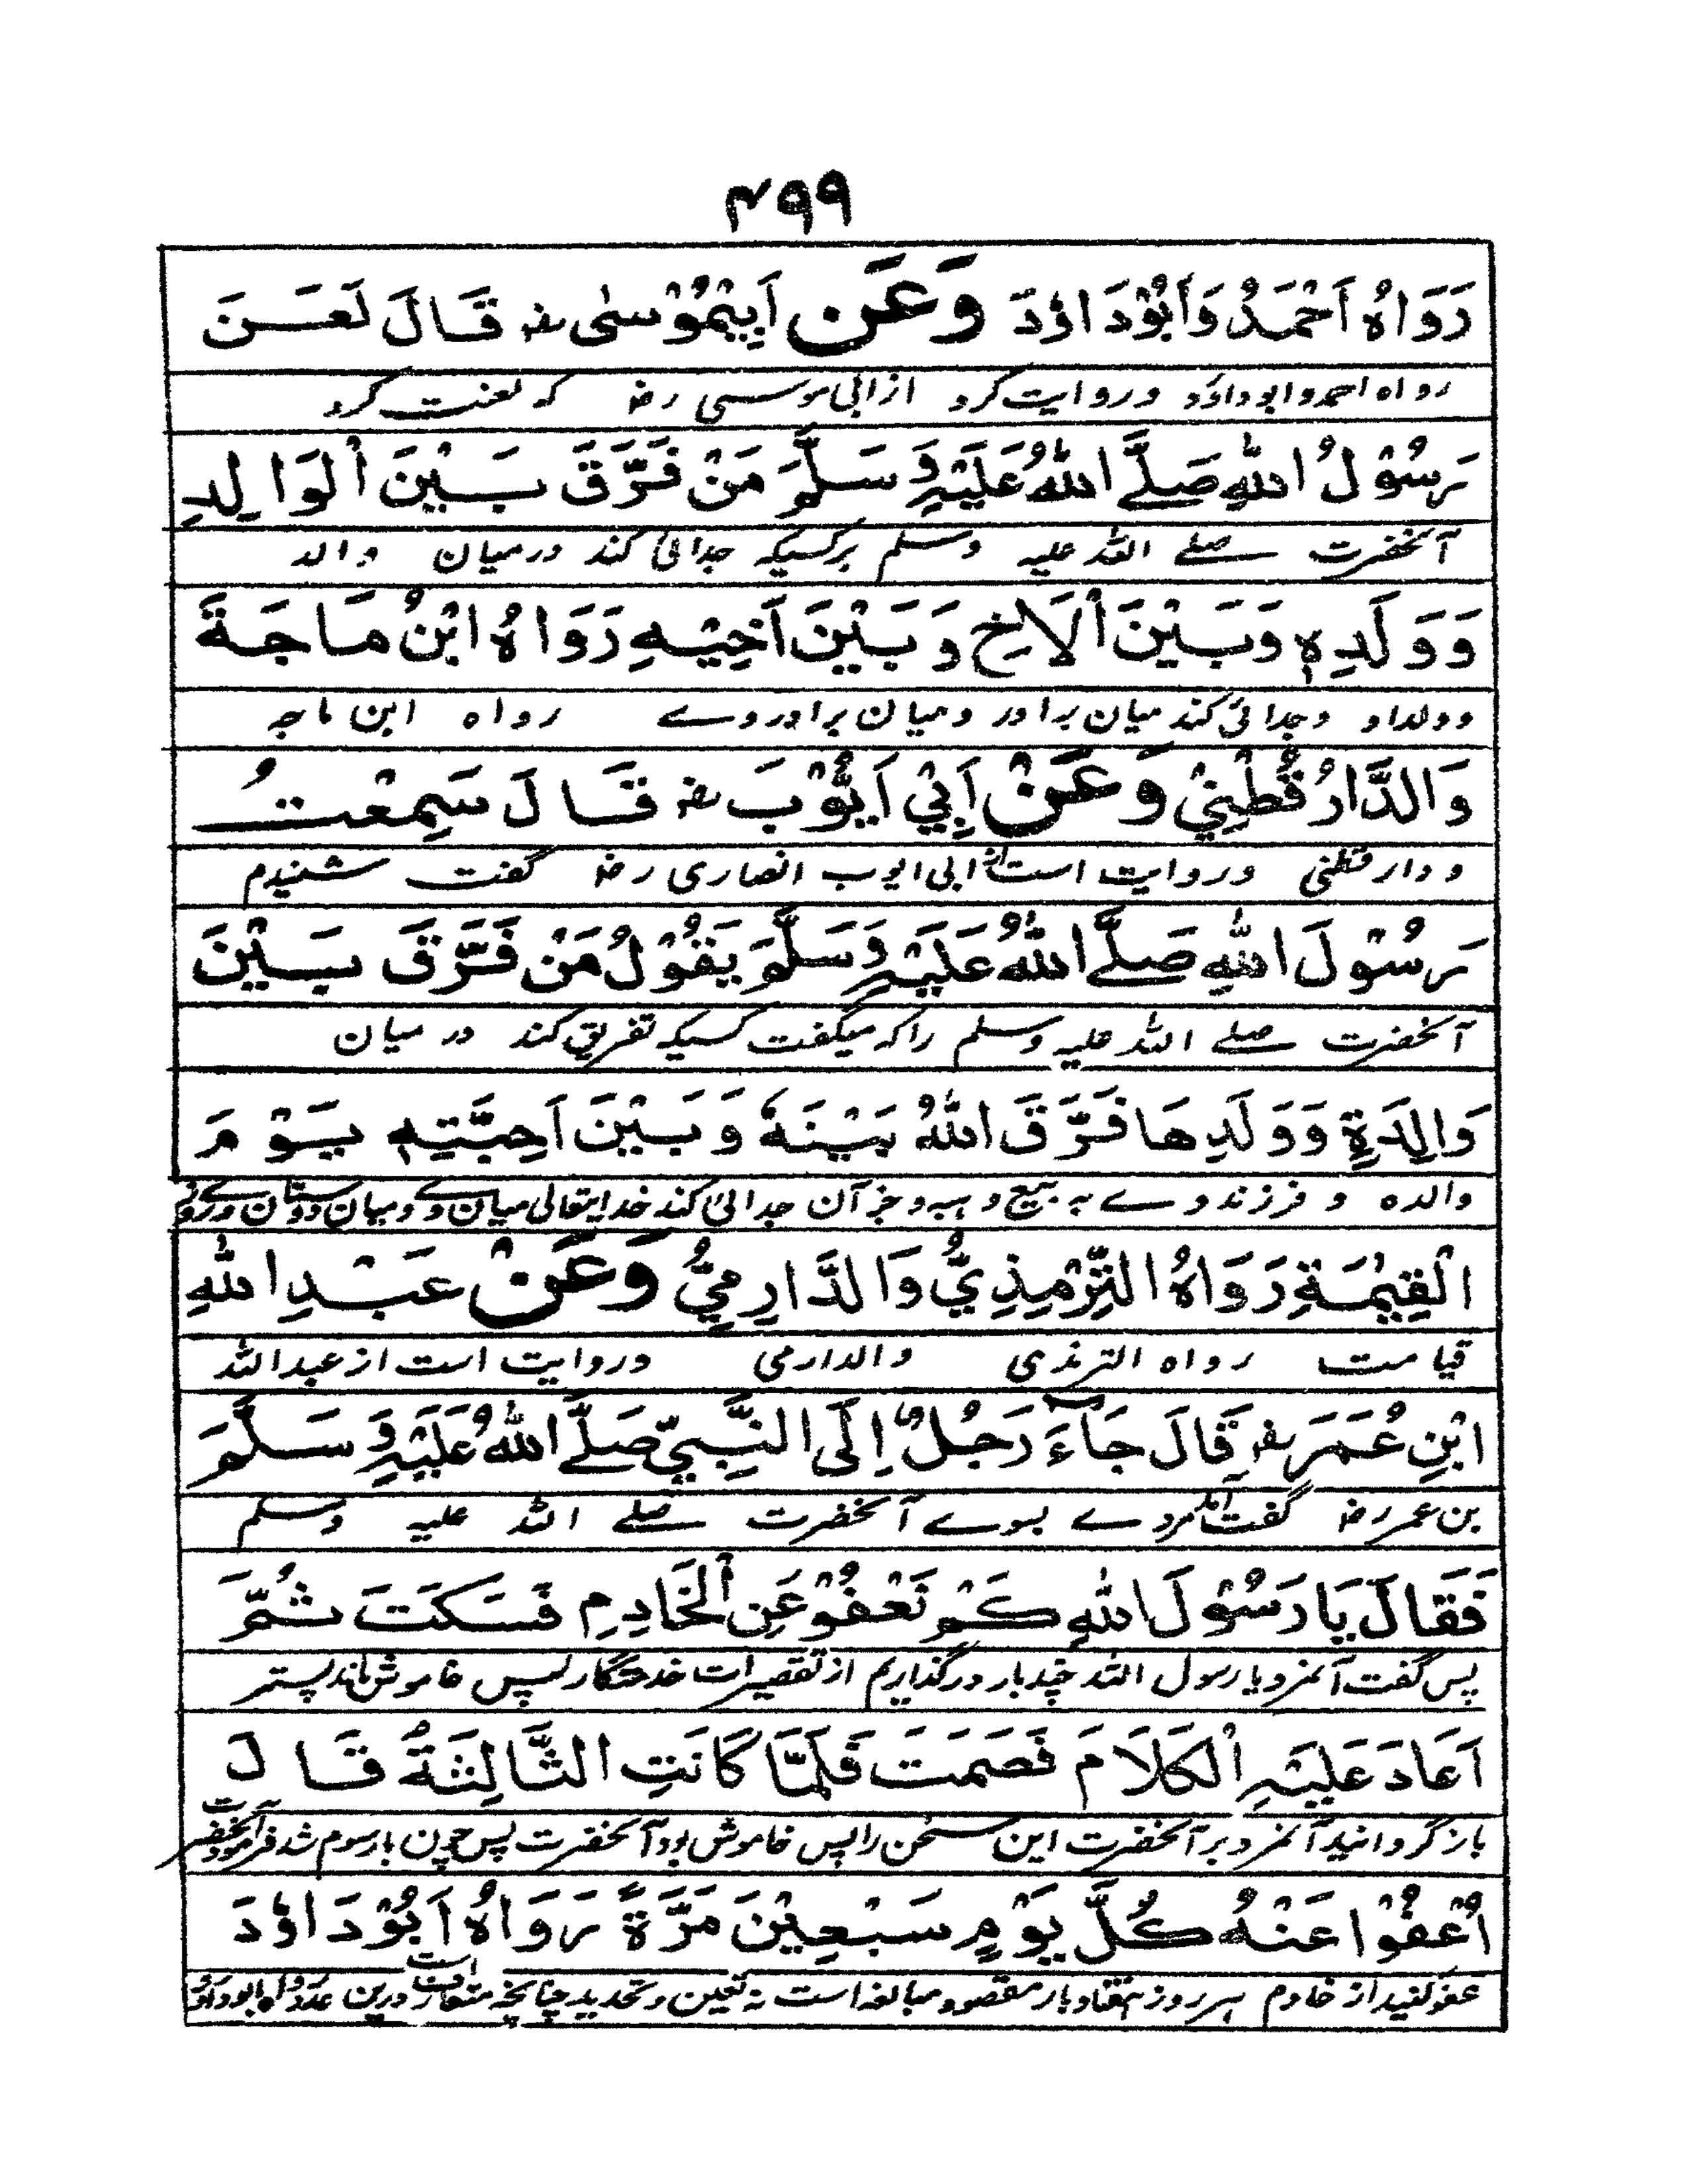 ۴۹۹
رَوَاهُ اَحْمَدُ وَأَبُوْدَاوٗدَ وَعَن اَبِيْمُوْسٰى رضہ قَالَ لَعَنَ
رواه احمد وابوداؤد وروایت کرد از ابی موسی رضہ که لعنت کرد
رَسُوْلُ اللهِ صَلَّے اللهُ عَلَيْهِ وَسَلَّمَ مَنْ فَرَّقَ بَيْنَ الْوَالِدِ
آنحضرت صلے اللہ علیہ وسلم برکسیکه جدائی کند درمیان والد
وَوَلَدِهٖ وَبَيْنَ الْاَخِ وَبَيْنَ اَخِيْهِ رَوَاهُ ابْنُ مَاجَةَ
وولد او وجدائی کند میان برادر ومیان برادر وے رواه ابن ماجه
وَالدَّارُ قُطْنِيْ وَعَنْ اَبِيْ اَيُّوْبَ رضہ قَالَ سَمِعْتُ
ودار قطنی وروایت است از ابی ایوب انصاری رضہ گفت شنیدم
رَسُوْلَ اللهِ صَلَّے اللهُ عَلَيْهِ وَسَلَّمَ يَقُوْلُ مَنْ فَرَّقَ بَيْنَ
آنحضرت صلے اللہ علیہ وسلم را که میگفت کسیکه تفریق کند درمیان
وَالِدَةٍ وَوَلَدِهَا فَرَّقَ اللهُ بَيْنَهٗ وَبَيْنَ اَحِبَّتِهٖ يَوْمَ
والده و فرزند وے به بیع وہبه وجز آن جدائی کند خدایتعالی میان وے ومیان دوستان وے روز
الْقِيٰمَةِ رَوَاهُ التِّرْمِذِيُّ وَالدَّارِمِيُّ وَعَنْ عَبْدِ اللهِ
قیامت رواه الترمذی والدارمی وروایت است از عبداللہ
ابْنِ عُمَرَ رضہ قَالَ جَاءَ رَجُلٌ اِلَى النَّبِيِّ صَلَّے اللهُ عَلَيْهِ وَسَلَّمَ
بن عمر رضہ گفت آمد مردے بسوے آنحضرت صلے اللہ علیہ وسلم
فَقَالَ يَا رَسُوْلَ اللهِ كَمْ نَعْفُوْ عَنِ الْخَادِمِ فَسَكَتَ ثُمَّ
پس گفت آنمرد یا رسول اللہ چند بار درگذاریم از تقصیرات خدمتگار پس خاموش ماند پستر
اَعَادَ عَلَيْهِ الْكَلَامَ فَصَمَتَ فَلَمَّا كَانَتِ الثَّالِثَةُ قَالَ
باز گردانید آنمرد بر آنحضرت این سخن را پس خاموش بود آنحضرت پس چون بار سوم شد فرمود آنحضرت
اُعْفُوْا عَنْهُ كُلَّ يَوْمٍ سَبْعِيْنَ مَرَّةً رَوَاهُ اَبُوْدَاوٗدَ
عفو کنید از خادم ہر روز ہفتاد بار مقصود مبالغه است نه تعیین وتحدید چنانچه متعارف است درین عدد رواه ابوداؤد